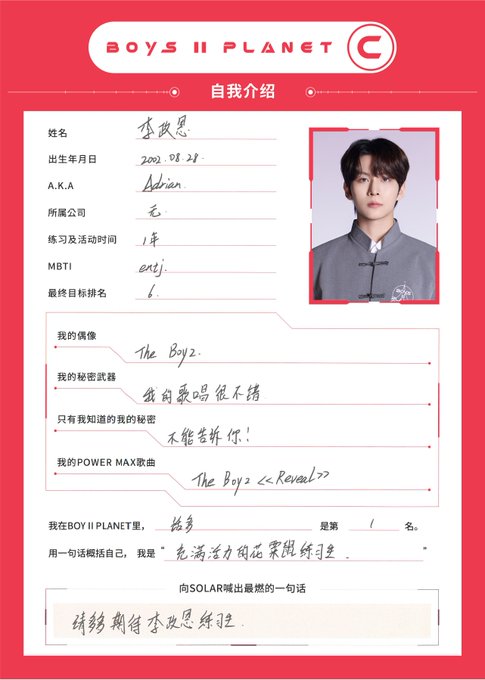 BOYS II PLANET C
自我介绍
姓名 李政恩
出生年月日 2002.08.28.
A.K.A Adrian.
所属公司 元
练习及活动时间 1年
MBTI entj.
最终目标排名 6.
我的偶像
The Boyz.
我的秘密武器
我的歌唱很不错
只有我知道的我的秘密
不能告诉你!
我的POWER MAX歌曲
The Boyz <<Reveal>>
我在BOY II PLANET里, 是第 1 名。
用一句话概括自己, 我是 “ 充满活力的花栗鼠练习生. ”
向SOLAR喊出最燃的一句话
请多多期待李政恩练习生.